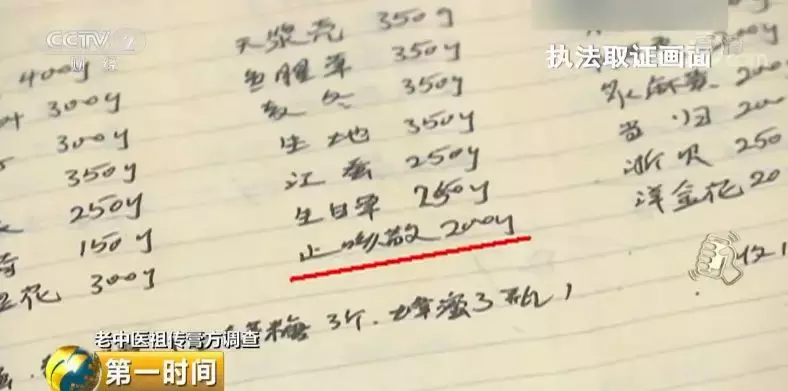 CCTV 2
财经
执法取证画面
天浆壳 350g
400g
鱼腥草 350g
300g
款冬 350g
300g
生地 350g
当归 200
350g
江蚕 250g
浙贝 250
250g
生甘草 250g
洋金花 20
150g
止咳散 200g
花 300g
糖 3个、蜂蜜3瓶
收
老中医祖传膏方调查
第一时间